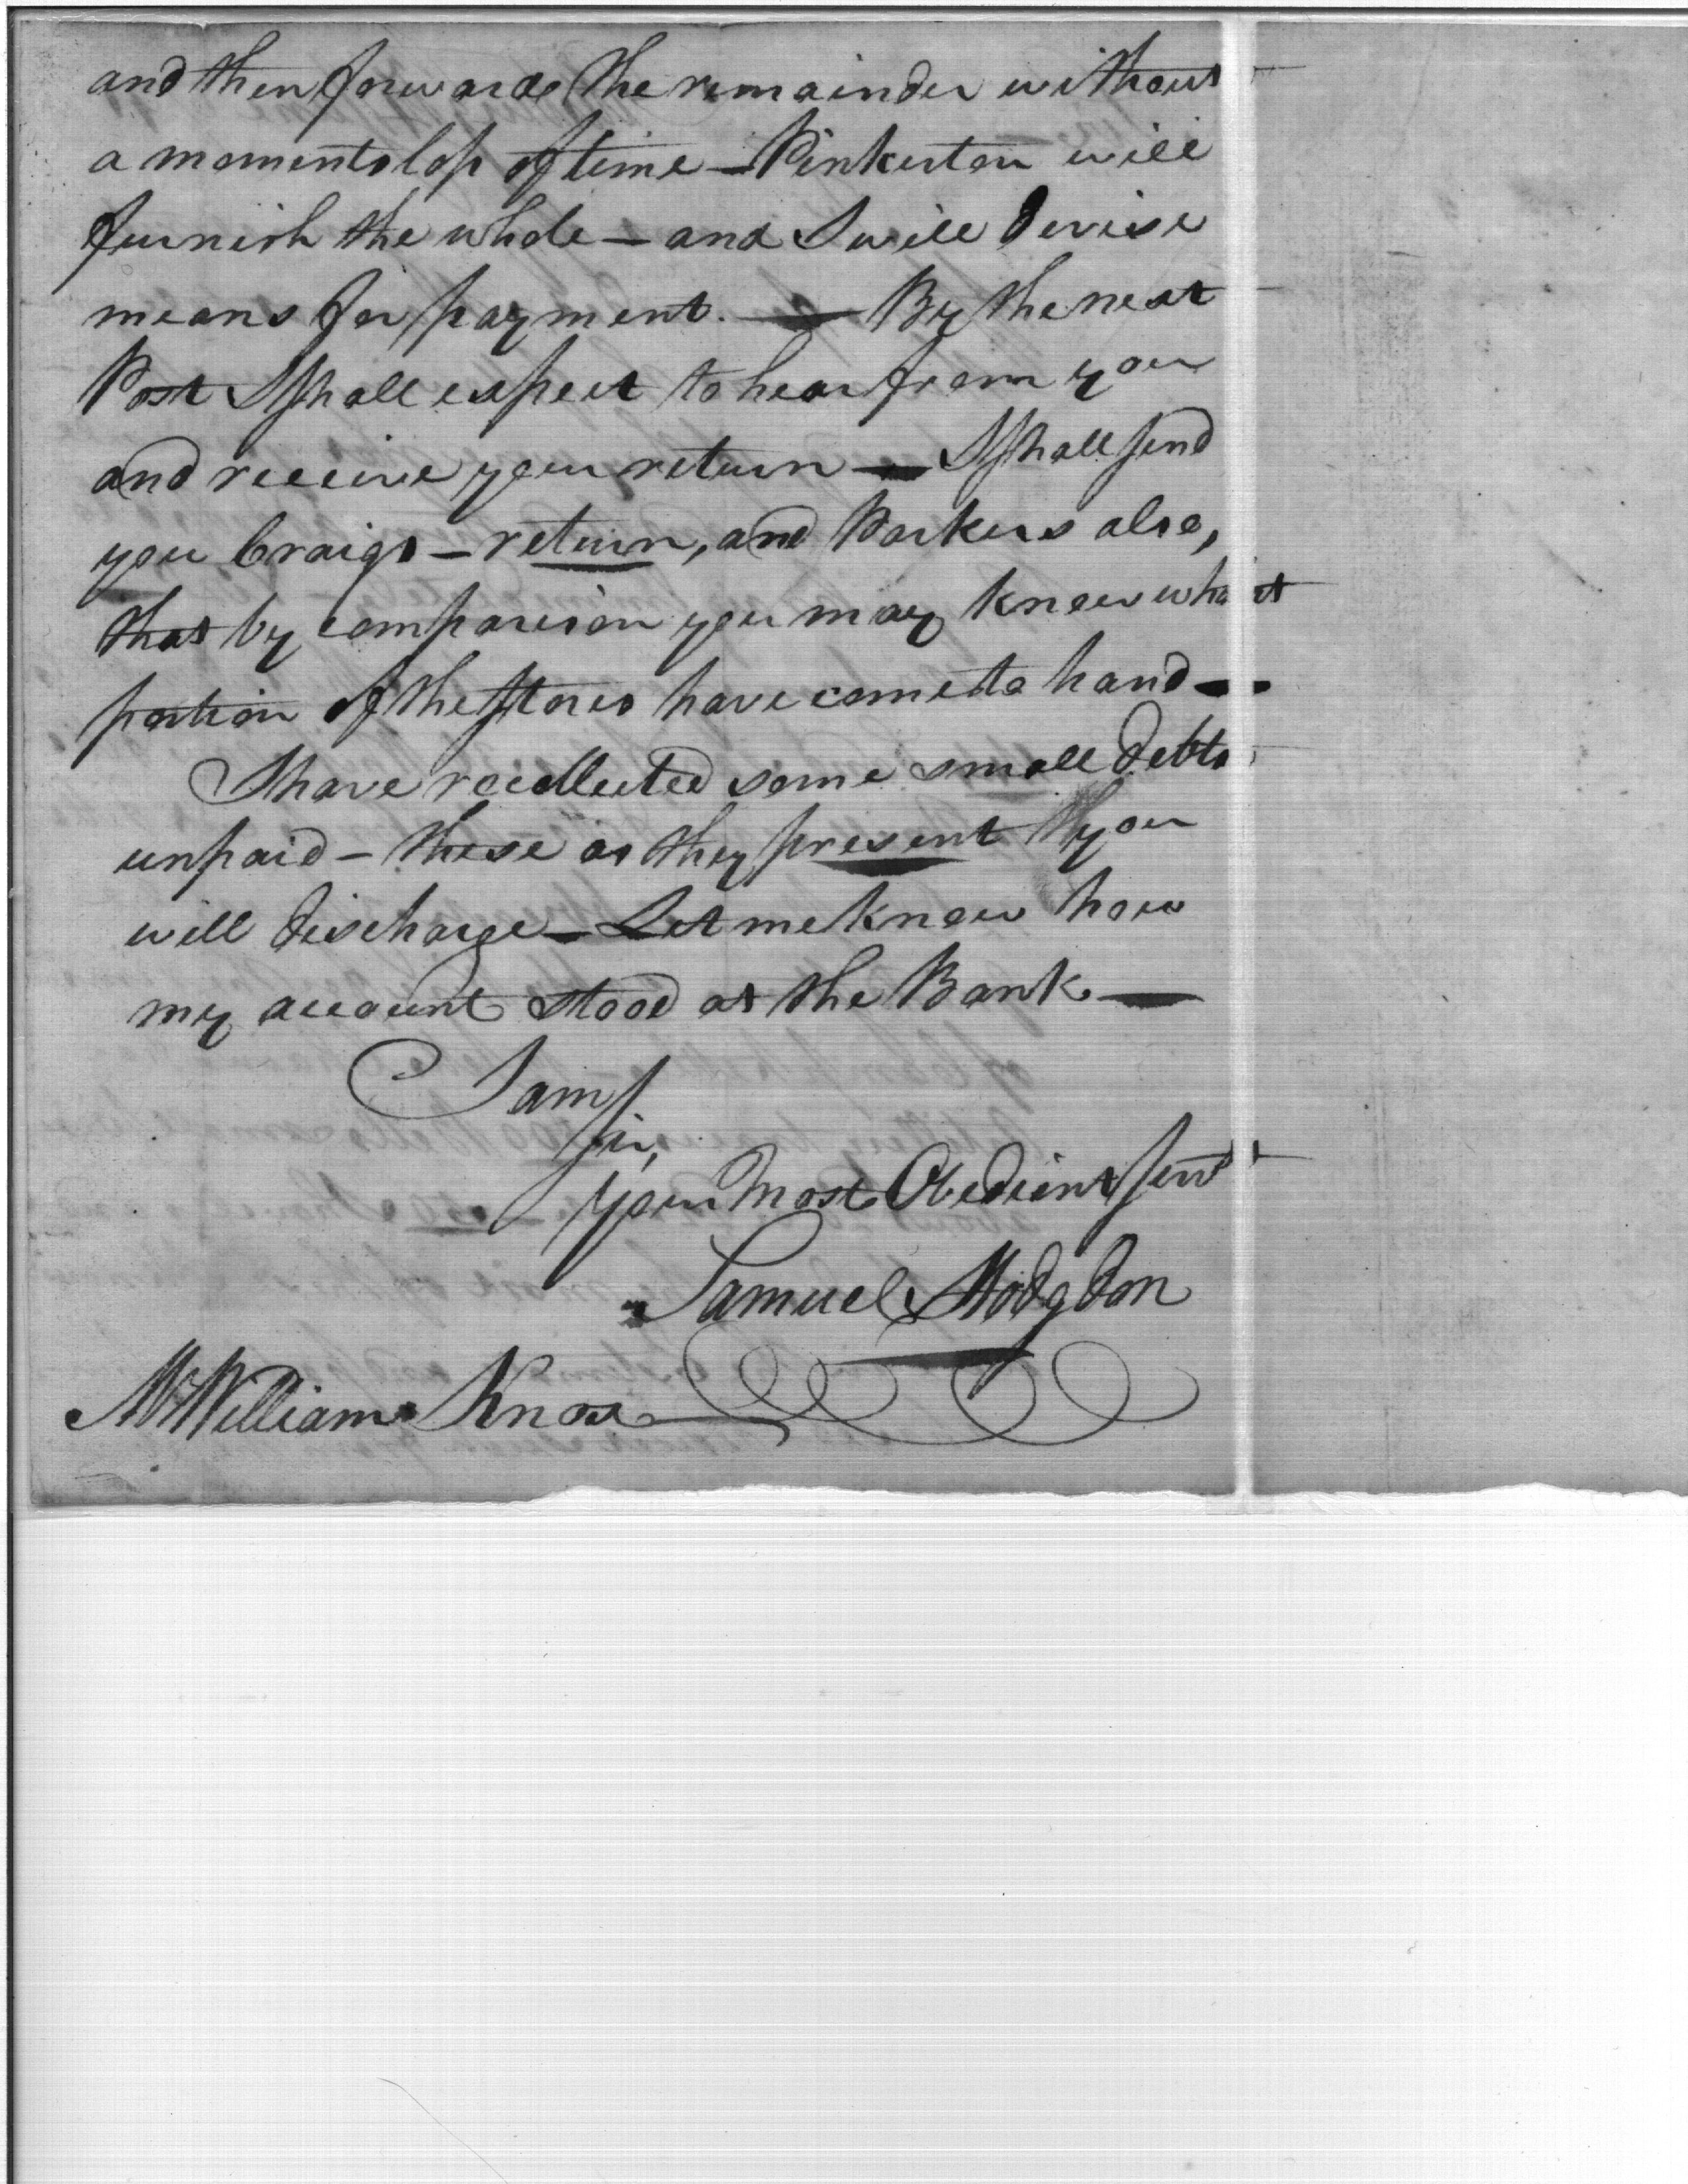 and then forward the remainder without
a moments loss of time — Pinkerton will
furnish the whole — and I will devise
means for payment. — By the next
Post I shall expect to hear from you
and receive your return — I shall send
you Craigs — return, and Parkers also,
that by comparison you may know what
portion of the stores have come to hand —
I have recollected some small debts
unpaid — these as they present you
will discharge — Let me know how
my account stood at the Bank —
I am
Sir,
your Most Obedient Servt
Samuel Hodgdon
Mr William Knox